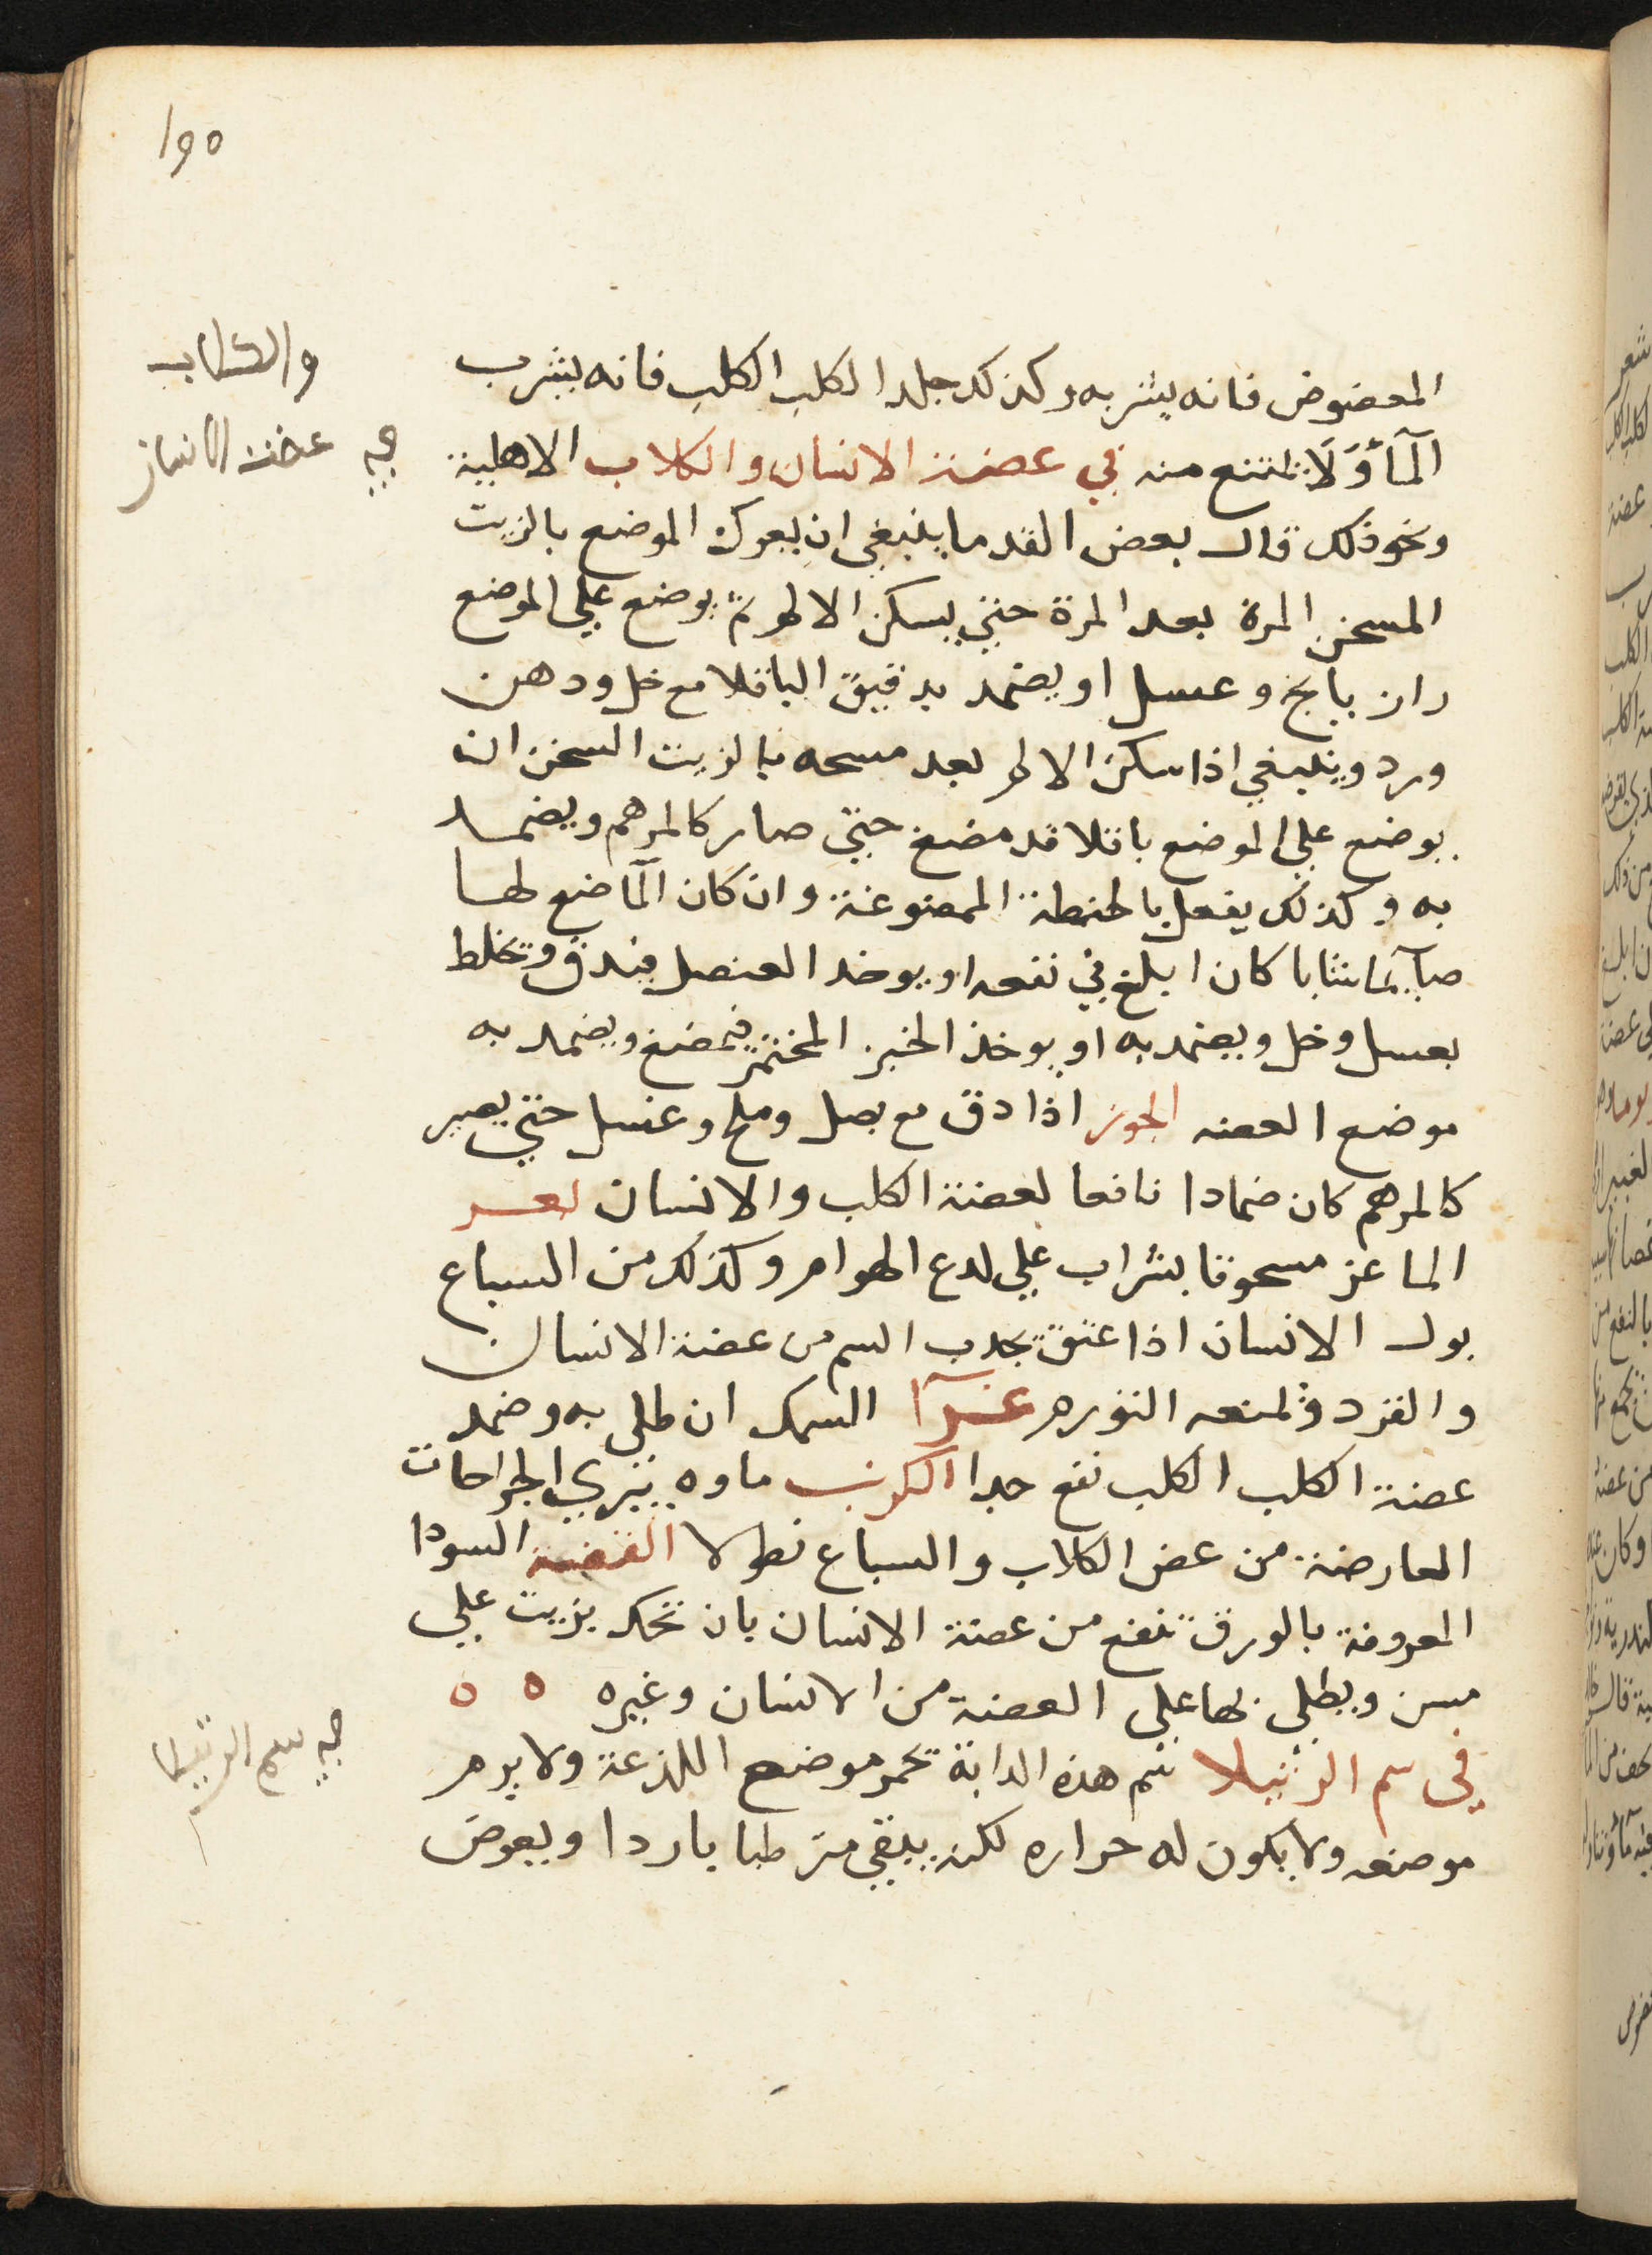 ١٩٥
والكلاب
في عضة الانسان
المعضوض فانه يشربه وكذلك جلد الكلب الكلب فانه يشرب
المآ ولا يمتنع منه في عضة الانسان والكلاب الاهلية
ونحو ذلك قال بعض القدما ينبغي ان يعرك الموضع بالزيت
المسخن المرة بعد المرة حتي يسكن الالم ثم يوضع علي الموضع
رازيانج وعسل او يضمد بدقيق الباقلا مع خل ودهن
ورد وينبغي اذا سكن الالم بعد مسحه بالزيت السخن ان
يوضع علي الموضع باقلا قد مضغ حتي صار كالمرهم ويضمد
به وكذلك يفعل بالحنطة الممضوغة وان كان الماضغ لها
صايما شابا كان ابلغ في نفعه او يوخذ العنصل فيدق وتخلط
بعسل وخل ويضمد به او يوخذ الخبز المختمر فيمضغ ويضمد به
موضع العضه الجوز اذا دق مع بصل وملح وعسل حتي يصير
كالمرهم كان ضمادا نافعا لعضة الكلب والانسان بعر
الماعز مسحوقا بشراب علي لدع الهوام وكذلك من السباع
بول الانسان اذا عتق يجدب السم من عضة الانسان
والقرد غرآ السمك ان طلي به وضمد
عضة الكلب الكلب نفع جدا الكرنب ماوه يبري الجراحات
العارضة من عض الكلاب والسباع نطولا الفضة السودا
المعروفة بالورق تنفع من عضة الانسان بان تحك بزيت علي
مسن ويطلي بها علي العضة من الانسان وغيره ٥ ٥
في سم الرتيلا
في سم الرتيلا سم هذه الدابة تحمر موضع اللذعة ولا يرم
موضعه ولا يكون له حراره لكنه يبقي مترطبا باردا ويعرض